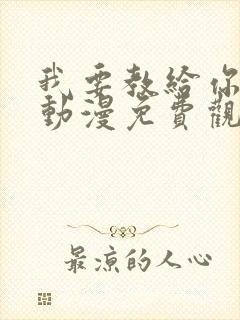 我要教給你
動漫免費觀
最涼的人心